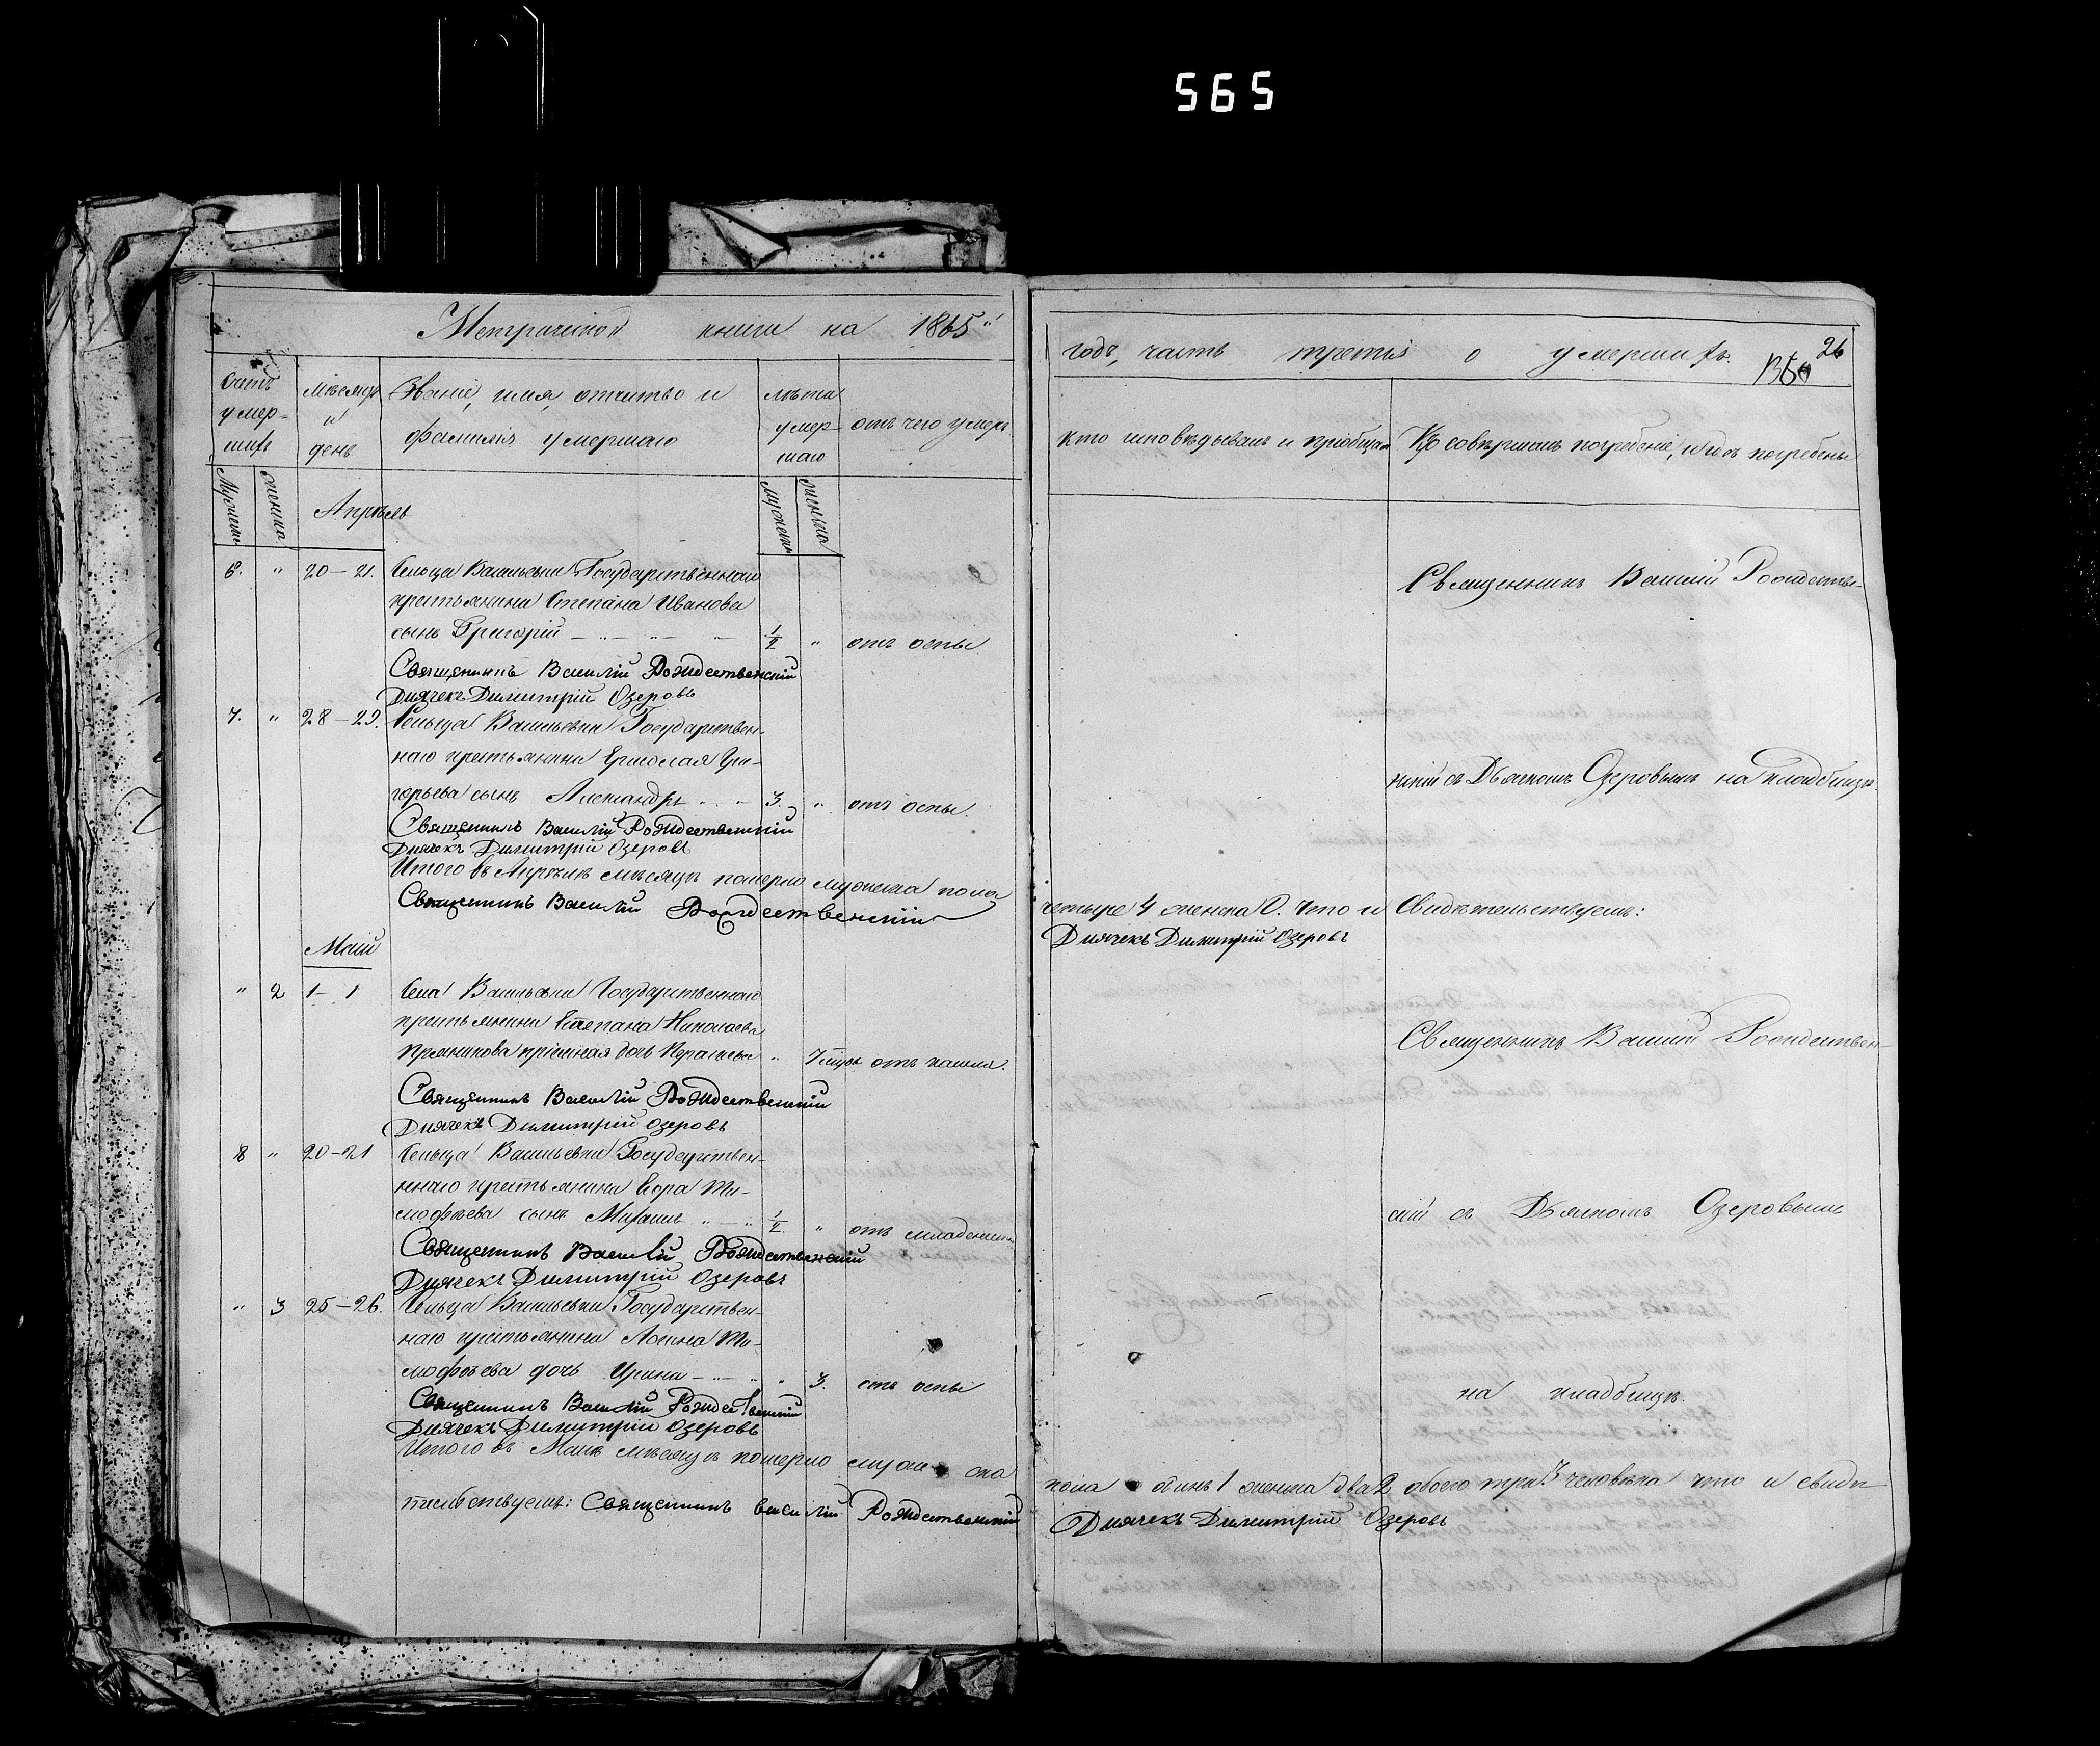 565
Метрической книги на 1865"
годъ, часть третья о умершихъ.
26
Счетъ умер-шихъ
Мѣсяцъ и день
Званіе, имя, отчество и фамилія умершаго
лѣта умер-шаго
отъ чего умеръ
кто исповѣдывалъ и пріобщалъ
Кто совершалъ погребеніе, и гдѣ погребены
Мужеска
женска
Апрѣль
мужеска
женска
6. " 20 – 21. Сельца Васильевки Государственнаго
крестьянина Степана Иванова
сынъ Григорій 1/2 " отъ оспы.
Священникъ Василій Рождественскій
Дьячекъ Димитрій Озеровъ
Священникъ Василій Рождестве-
7. " 28 – 29. Сельца Васильевки Государствен-
наго крестьянина Ермолая Гри-
горьева сынъ Александръ 3. " отъ оспы.
Священникъ Василій Рождественскій
Дьячекъ Димитрій Озеровъ
нскій съ Дьячкомъ Озеровымъ на кладбищѣ.
Итого въ Апрѣлѣ мѣсяцѣ померло мужеска пола
четыре 4 женска 0. Что и Свидѣтельствуемъ:
Священникъ Василій Рождественскій
Дьячекъ Димитрій Озеровъ
Май
" 2 1 – 1 Села Васильевки Государственнаго
крестьянина Степана Николаева
дочь " отъ кашля.
Священникъ Василій Рождественскій
Дьячекъ Димитрій Озеровъ
Священникъ Василій Рождествен-
8 " 20 – 21 Сельца Васильевки Государствен-
ннаго крестьянина Егора Ти-
мофѣева сынъ Михаилъ 1/2 " отъ младенческ.
Священникъ Василій Рождественскій
Дьячекъ Димитрій Озеровъ
скій съ Дьячкомъ Озеровымъ
" 3 25 – 26. Сельца Васильевки Государствен-
наго крестьянина Логина Ти-
мофѣева дочь Ирина " 3. отъ оспы
Священникъ Василій Рождественскій
Дьячекъ Димитрій Озеровъ
на кладбищѣ.
Итого въ Маѣ мѣсяцѣ померло мужеска
пола одинъ 1 женска два 2 обоего три 3 человѣка что и свидѣ-
тельствуемъ: Священникъ Василій Рождественскій
Дьячекъ Димитрій Озеровъ